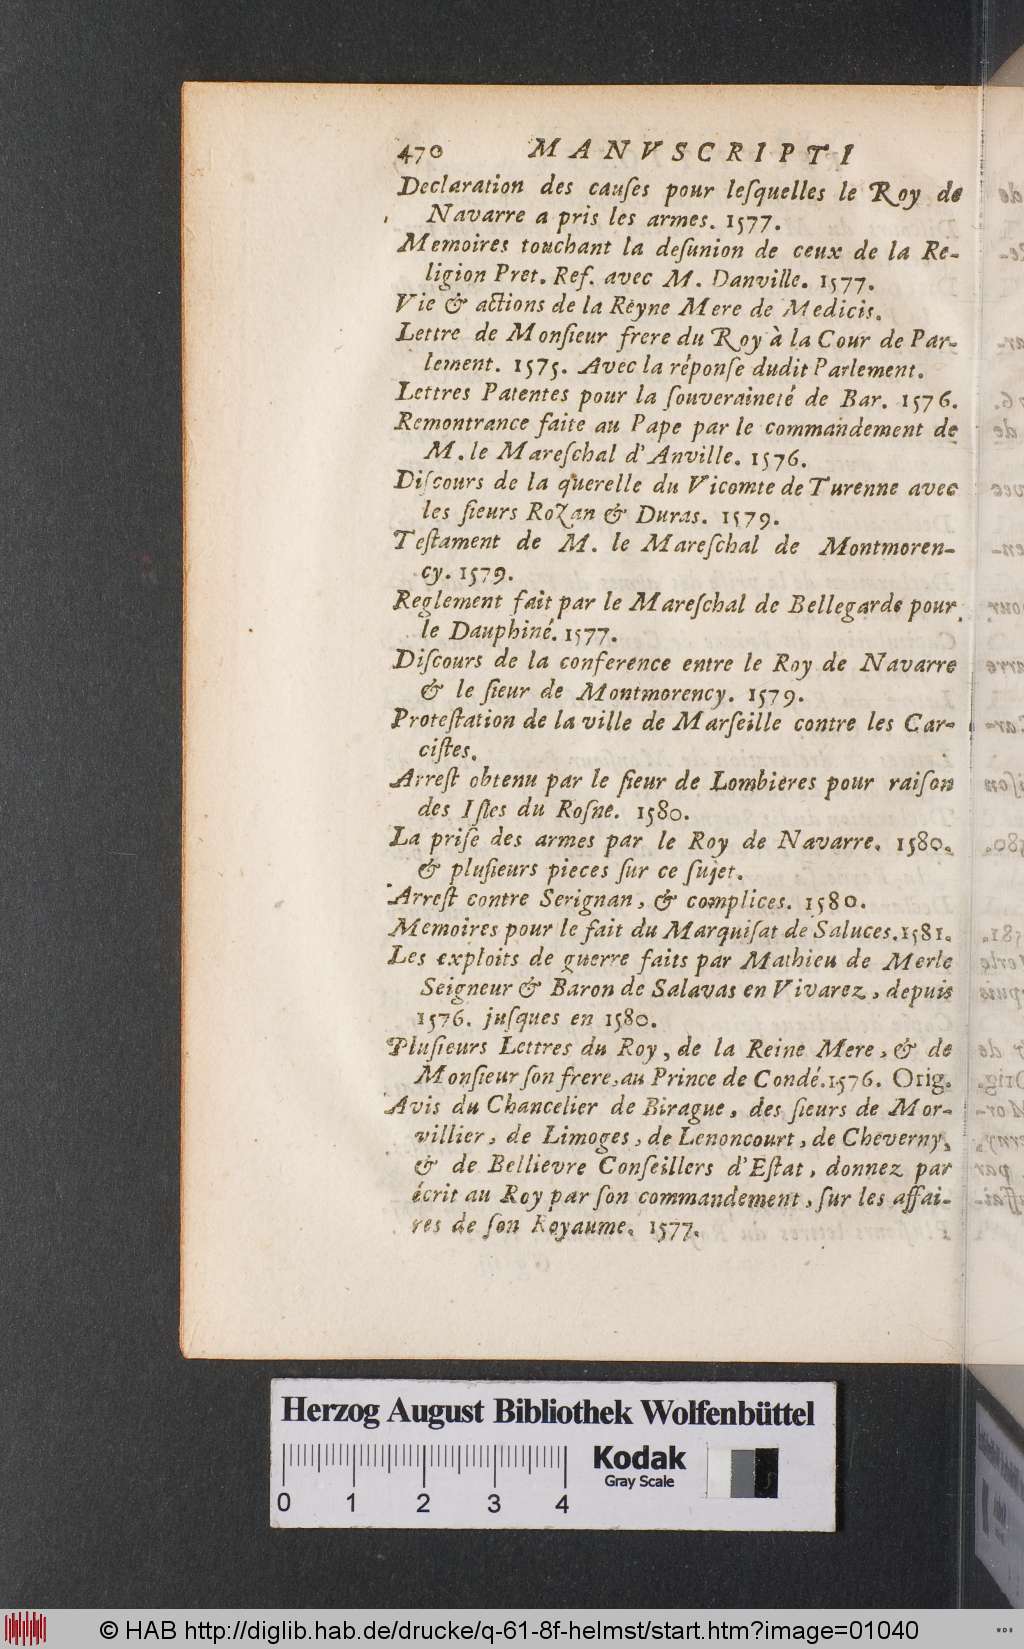 470 MANVSCRIPTI
Declaration des cauſes pour leſquelles le Roy de
Navarre a pris les armes. 1577.
Memoires touchant la deſunion de ceux de la Re-
ligion Pret. Ref. avec M. Danville. 1577.
Vie & actions de la Reyne Mere de Medicis.
Lettre de Monſieur frere du Roy à la Cour de Par-
lement. 1575. Avec la réponſe dudit Parlement.
Lettres Patentes pour la ſouveraineté de Bar. 1576.
Remontrance faite au Pape par le commandement de
M. le Mareſchal d'Anville. 1576.
Diſcours de la querelle du Vicomte de Turenne avec
les ſieurs Rozan & Duras. 1579.
Teſtament de M. le Mareſchal de Montmoren-
cy. 1579.
Reglement fait par le Mareſchal de Bellegarde pour
le Dauphiné. 1577.
Diſcours de la conference entre le Roy de Navarre
& le ſieur de Montmorency. 1579.
Proteſtation de la ville de Marſeille contre les Car-
ciſtes.
Arreſt obtenu par le ſieur de Lombieres pour raiſon
des Iſles du Roſne. 1580.
La priſe des armes par le Roy de Navarre. 1580.
& pluſieurs pieces ſur ce ſujet.
Arreſt contre Serignan, & complices. 1580.
Memoires pour le fait du Marquiſat de Saluces. 1581.
Les exploits de guerre faits par Mathieu de Merle
Seigneur & Baron de Salavas en Vivarez, depuis
1576. juſques en 1580.
Pluſieurs Lettres du Roy, de la Reine Mere, & de
Monſieur ſon frere, au Prince de Condé. 1576. Orig.
Avis du Chancelier de Birague, des ſieurs de Mor-
villier, de Limoges, de Lenoncourt, de Cheverny,
& de Bellievre Conſeillers d'Eſtat, donnez par
écrit au Roy par ſon commandement, ſur les affai-
res de ſon Royaume. 1577.
Herzog August Bibliothek Wolfenbüttel
Kodak
Gray Scale
0 1 2 3 4
© HAB http://diglib.hab.de/drucke/q-61-8f-helmst/start.htm?image=01040